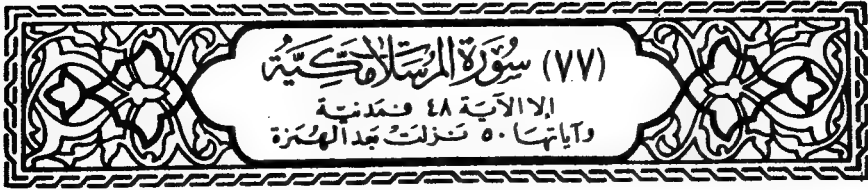 (٧٧) سُورَةُ المُرْسَلَاتِ مَكِّيَّةٌ
إلا الآية ٤٨ فمدنية
وآياتها ٥٠ نزلت بعد الهمزة